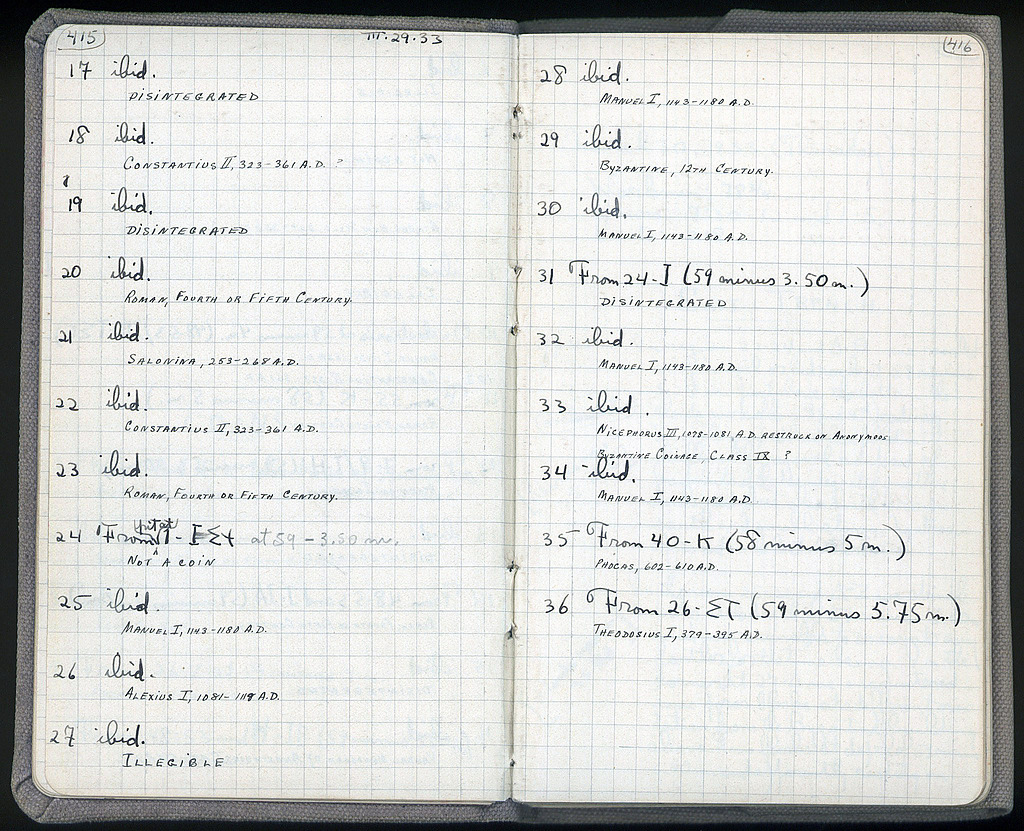 415
III.29.33
17 ibid.
DISINTEGRATED
18 ibid.
CONSTANTIUS II, 323-361 A.D. ?
19 ibid.
DISINTEGRATED
20 ibid.
ROMAN, FOURTH OR FIFTH CENTURY.
21 ibid.
SALONINA, 253-268 A.D.
22 ibid.
CONSTANTIUS II, 323-361 A.D.
23 ibid.
ROMAN, FOURTH OR FIFTH CENTURY.
24 From at 59 - 3.50 m.
NOT A COIN
25 ibid.
MANUEL I, 1143-1180 A.D.
26 ibid.
ALEXIUS I, 1081- A.D.
27 ibid.
ILLEGIBLE
416
28 ibid.
MANUEL I, 1143-1180 A.D.
29 ibid.
BYZANTINE, 12TH CENTURY.
30 ibid.
MANUEL I, 1143-1180 A.D.
31 From 24-I (59 minus 3.50 m.)
DISINTEGRATED
32 ibid.
MANUEL I, 1143-1180 A.D.
33 ibid.
NICEPHORUS III, 1078-1081, A.D. RESTRUCK ON ANONYMOUS
BYZANTINE COINAGE, CLASS IX ?
34 ibid.
MANUEL I, 1143-1180 A.D.
35 From 40-K (58 minus 5 m.)
PHOCAS, 602-610 A.D.
36 From 26-ΣΤ (59 minus 5.75 m.)
THEODOSIUS I, 379-395 A.D.